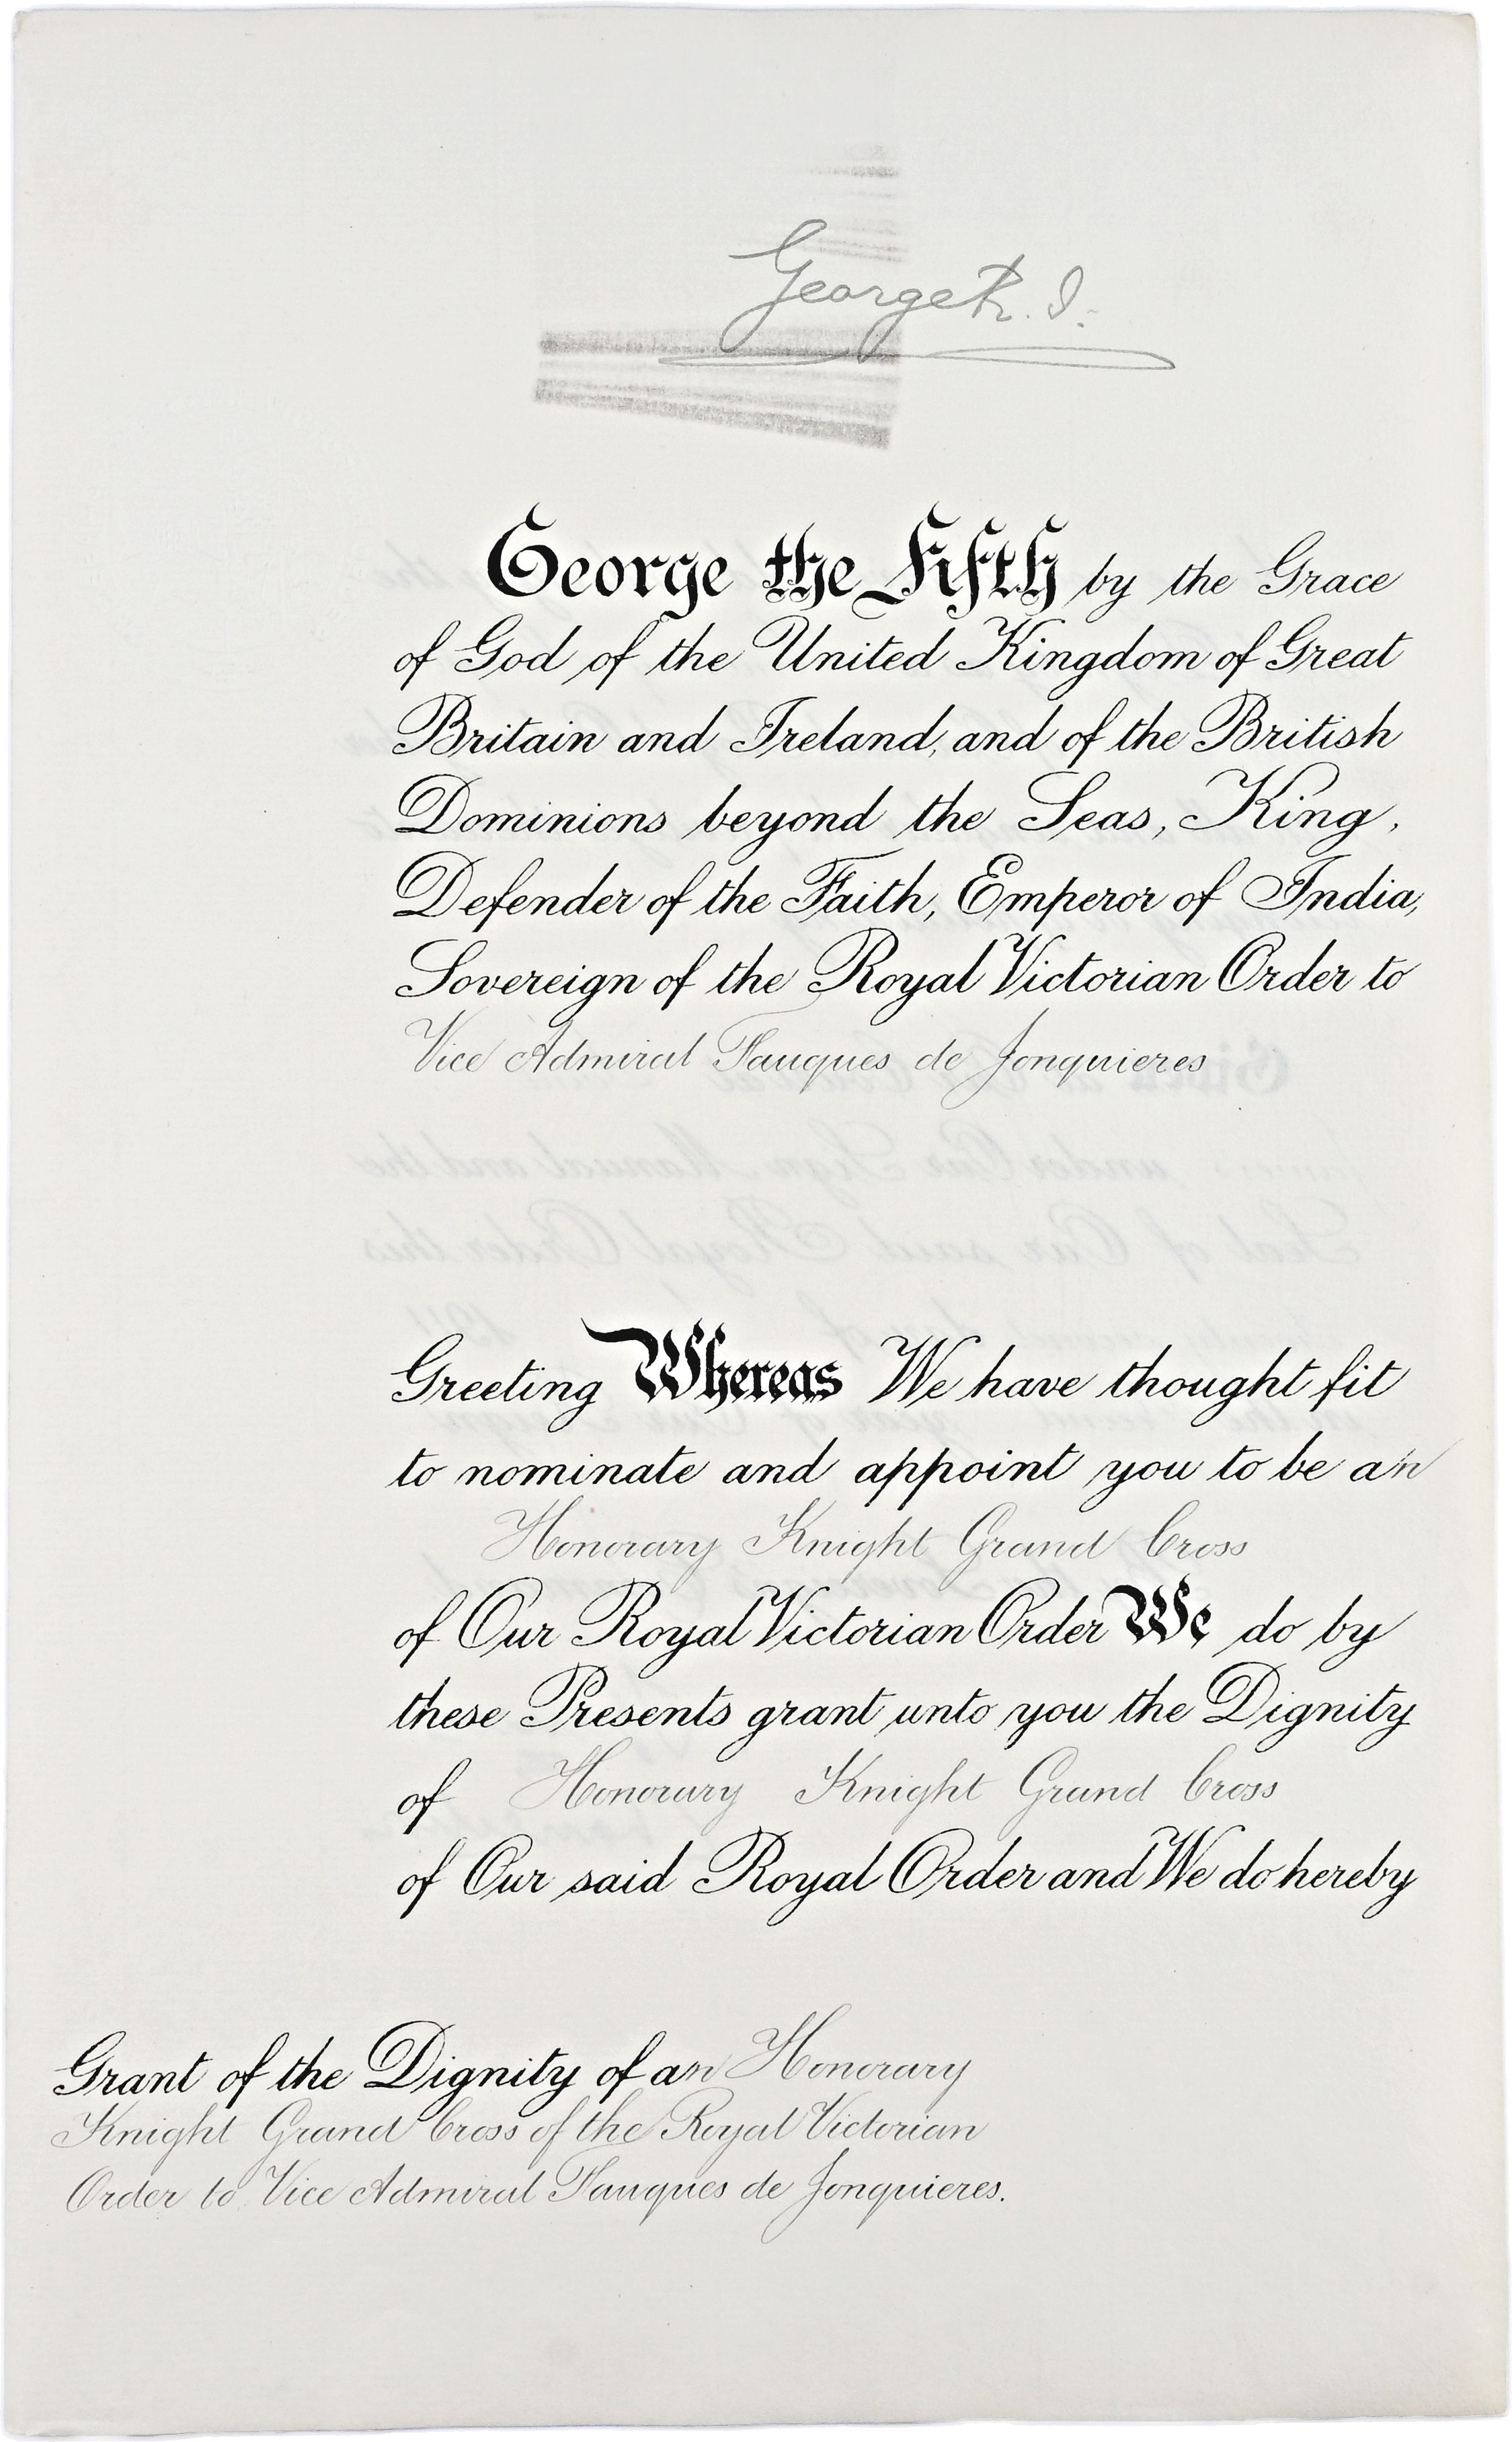 George R.I.
George the Fifth by the Grace
of God of the United Kingdom of Great
Britain and Ireland, and of the British
Dominions beyond the Seas, King,
Defender of the Faith, Emperor of India,
Sovereign of the Royal Victorian Order to
Vice Admiral Fauques de Jonquieres
Greeting Whereas We have thought fit
to nominate and appoint you to be an
Honorary Knight Grand Cross
of Our Royal Victorian Order We do by
these Presents grant unto you the Dignity
of Honorary Knight Grand Cross
of Our said Royal Order and We do hereby
Grant of the Dignity of an Honorary
Knight Grand Cross of the Royal Victorian
Order to Vice Admiral Fauques de Jonquieres.